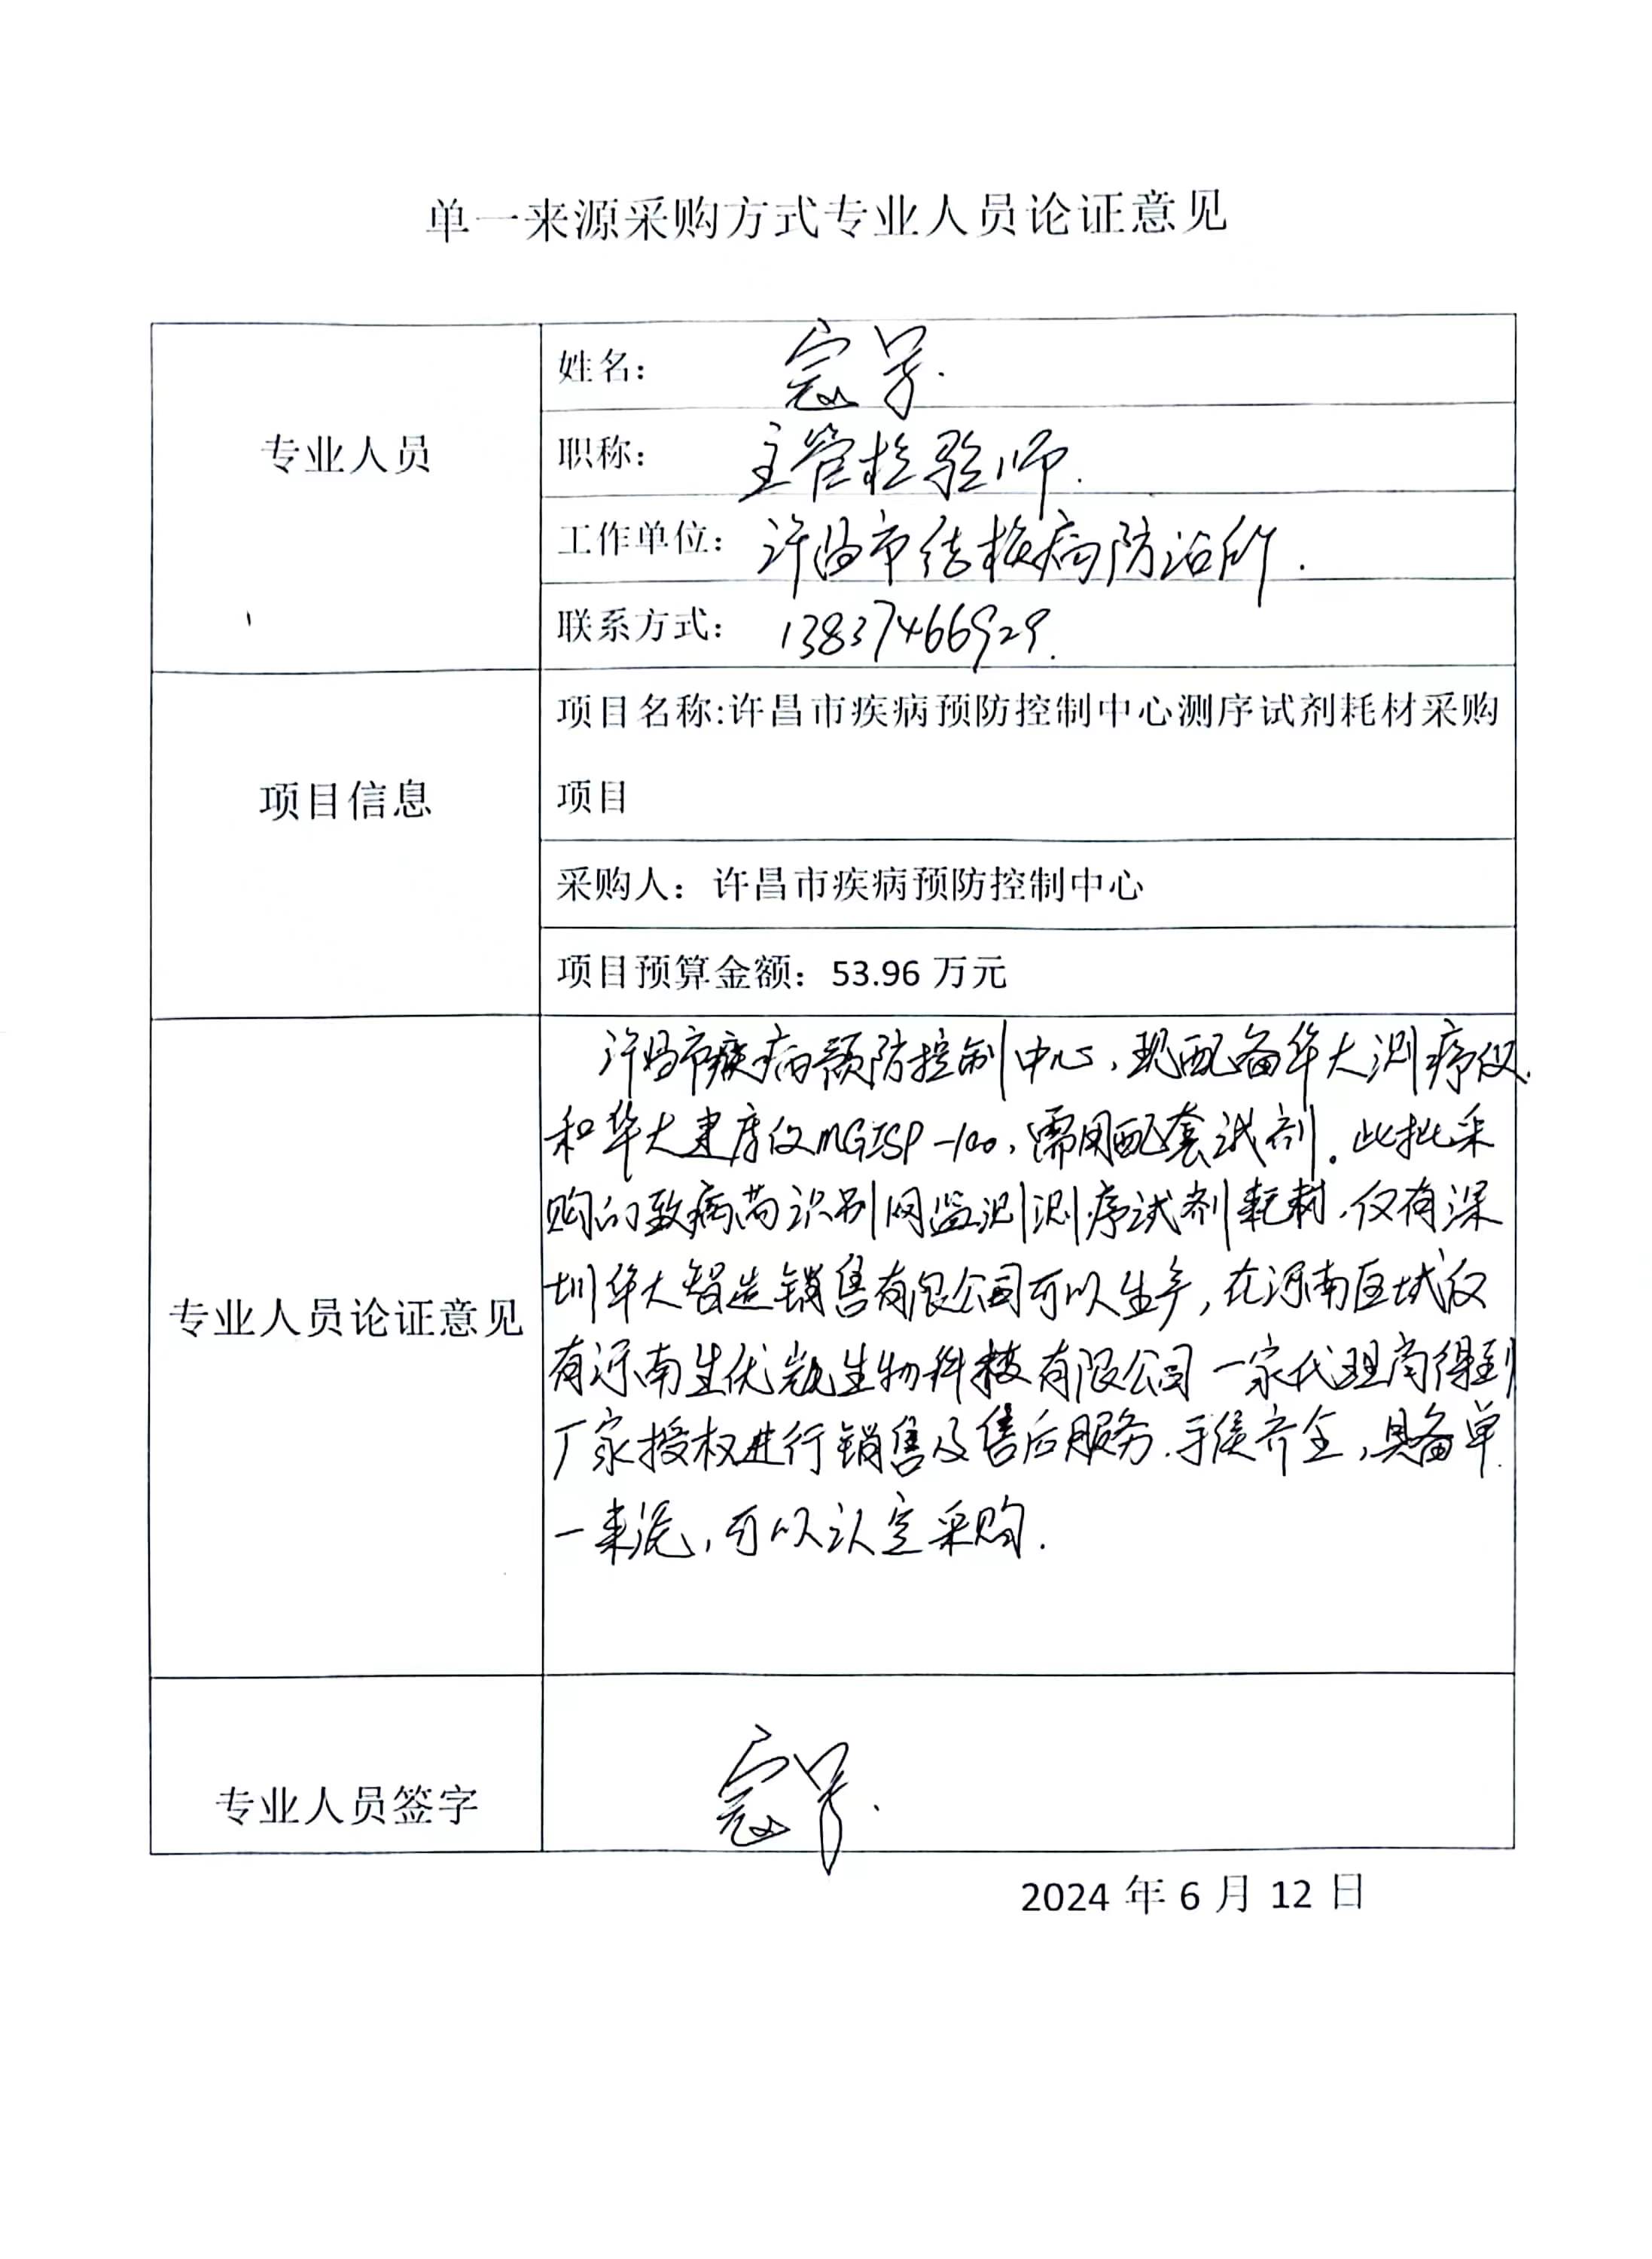 单一来源采购方式专业人员论证意见
专业人员
姓名：
职称： 主管检验师.
工作单位： 许昌市结核病防治所.
联系方式： 13837466929.
项目信息
项目名称:许昌市疾病预防控制中心测序试剂耗材采购
项目
采购人：许昌市疾病预防控制中心
项目预算金额：53.96 万元
专业人员论证意见
许昌市疾病预防控制中心，现配备华大测序仪
和华大建库仪MGISP-100，需用配套试剂。此批采
购的致病菌识别网监测测序试剂耗材，仅有深
圳华大智造销售有限公司可以生产，在河南区域仅
有河南生优凯生物科技有限公司一家代理商得到
厂家授权进行销售及售后服务.手续齐全，具备单
一来源，可以认定采购.
专业人员签字
2024 年 6 月 12 日